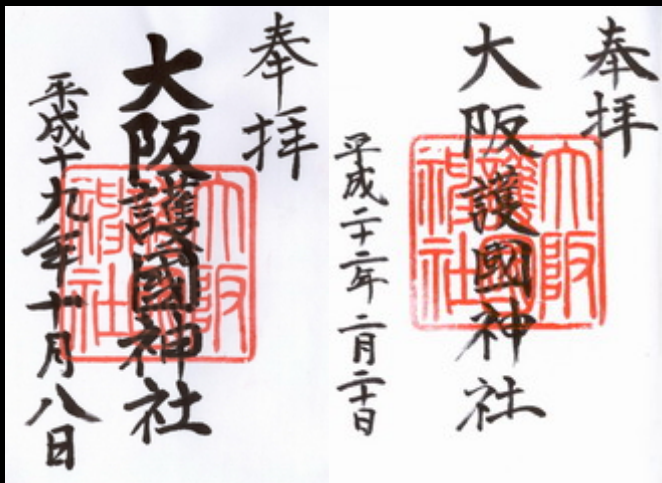 奉拝
大阪護國神社
平成十九年十月八日
大阪護國神社
奉拝
大阪護國神社
平成二十二年二月二十日
大阪護國神社